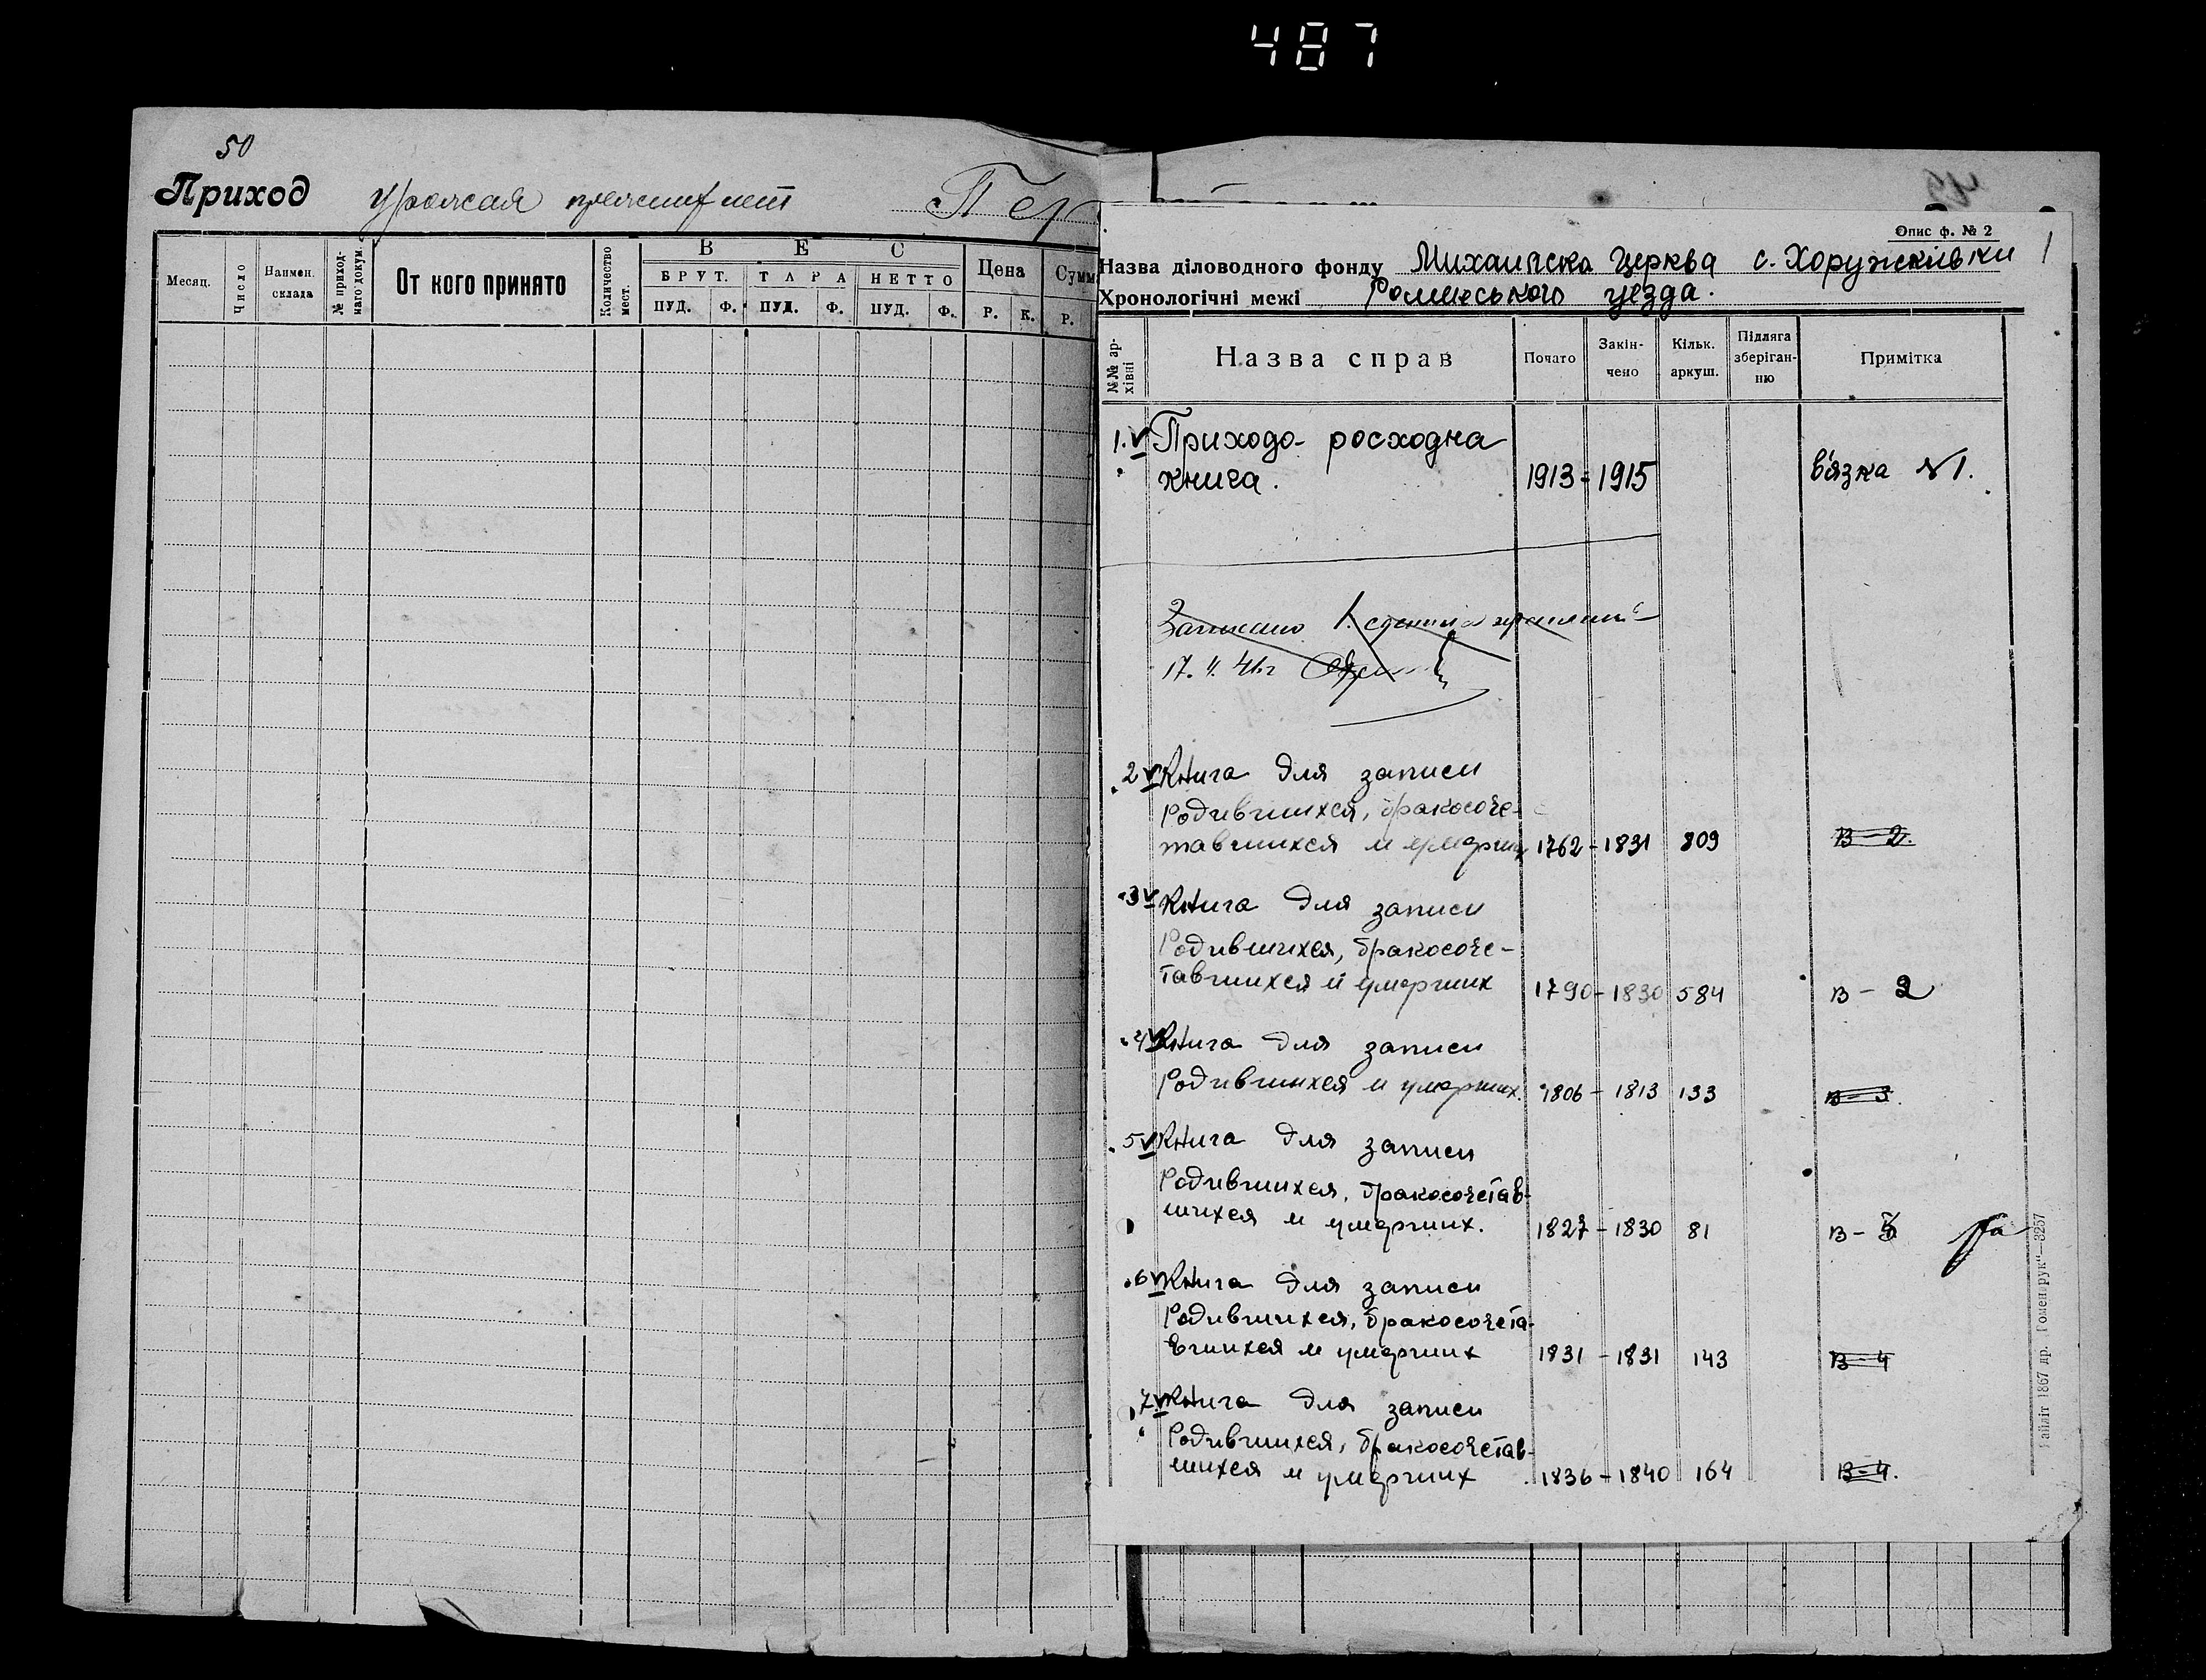 487
50
Приход урожая
Месяц.
Число
Наимен.
склада
№ приход-
наго докум.
От кого принято
Количество
мест.
ВЕС
БРУТ.
ТАРА
НЕТТО
ПУД.
Ф.
ПУД.
Ф.
ПУД.
Ф.
Цена
Р.
К.
Сумм
Р.
Опис ф. № 2
1
Назва діловодного фонду Михайлська церква с. Хоружківки
Хронологічні межі Роменського уезда.
№№ ар-
хівні
Назва справ
Почато
Закін-
чено
Кільк.
аркуш.
Підляга
зберіган-
ню
Примітка
1. V Приходо-росходна
книга. 1913 - 1915 в'язка №1.
17. II. 41г
2 V Книга для записи
Родившихся, бракосоче-
тавшихся и умерших 1762 - 1831 809 В - 2.
3 V Книга для записи
Родившихся, бракосоче-
тавшихся и умерших 1790 - 1830 584 В - 2
4 V Книга для записи
Родившихся и умерших. 1806 - 1813 133 В - 3.
5 V Книга для записи
Родившихся, бракосочетав-
шихся и умерших. 1827 - 1830 81 В - 3
6 V Книга для записи
Родившихся, бракосочета-
вшихся и умерших 1831 - 1831 143 В - 4
7. V Книга для записи
Родившихся, бракосочетав-
шихся и умерших 1836 - 1840 164 В - 4.